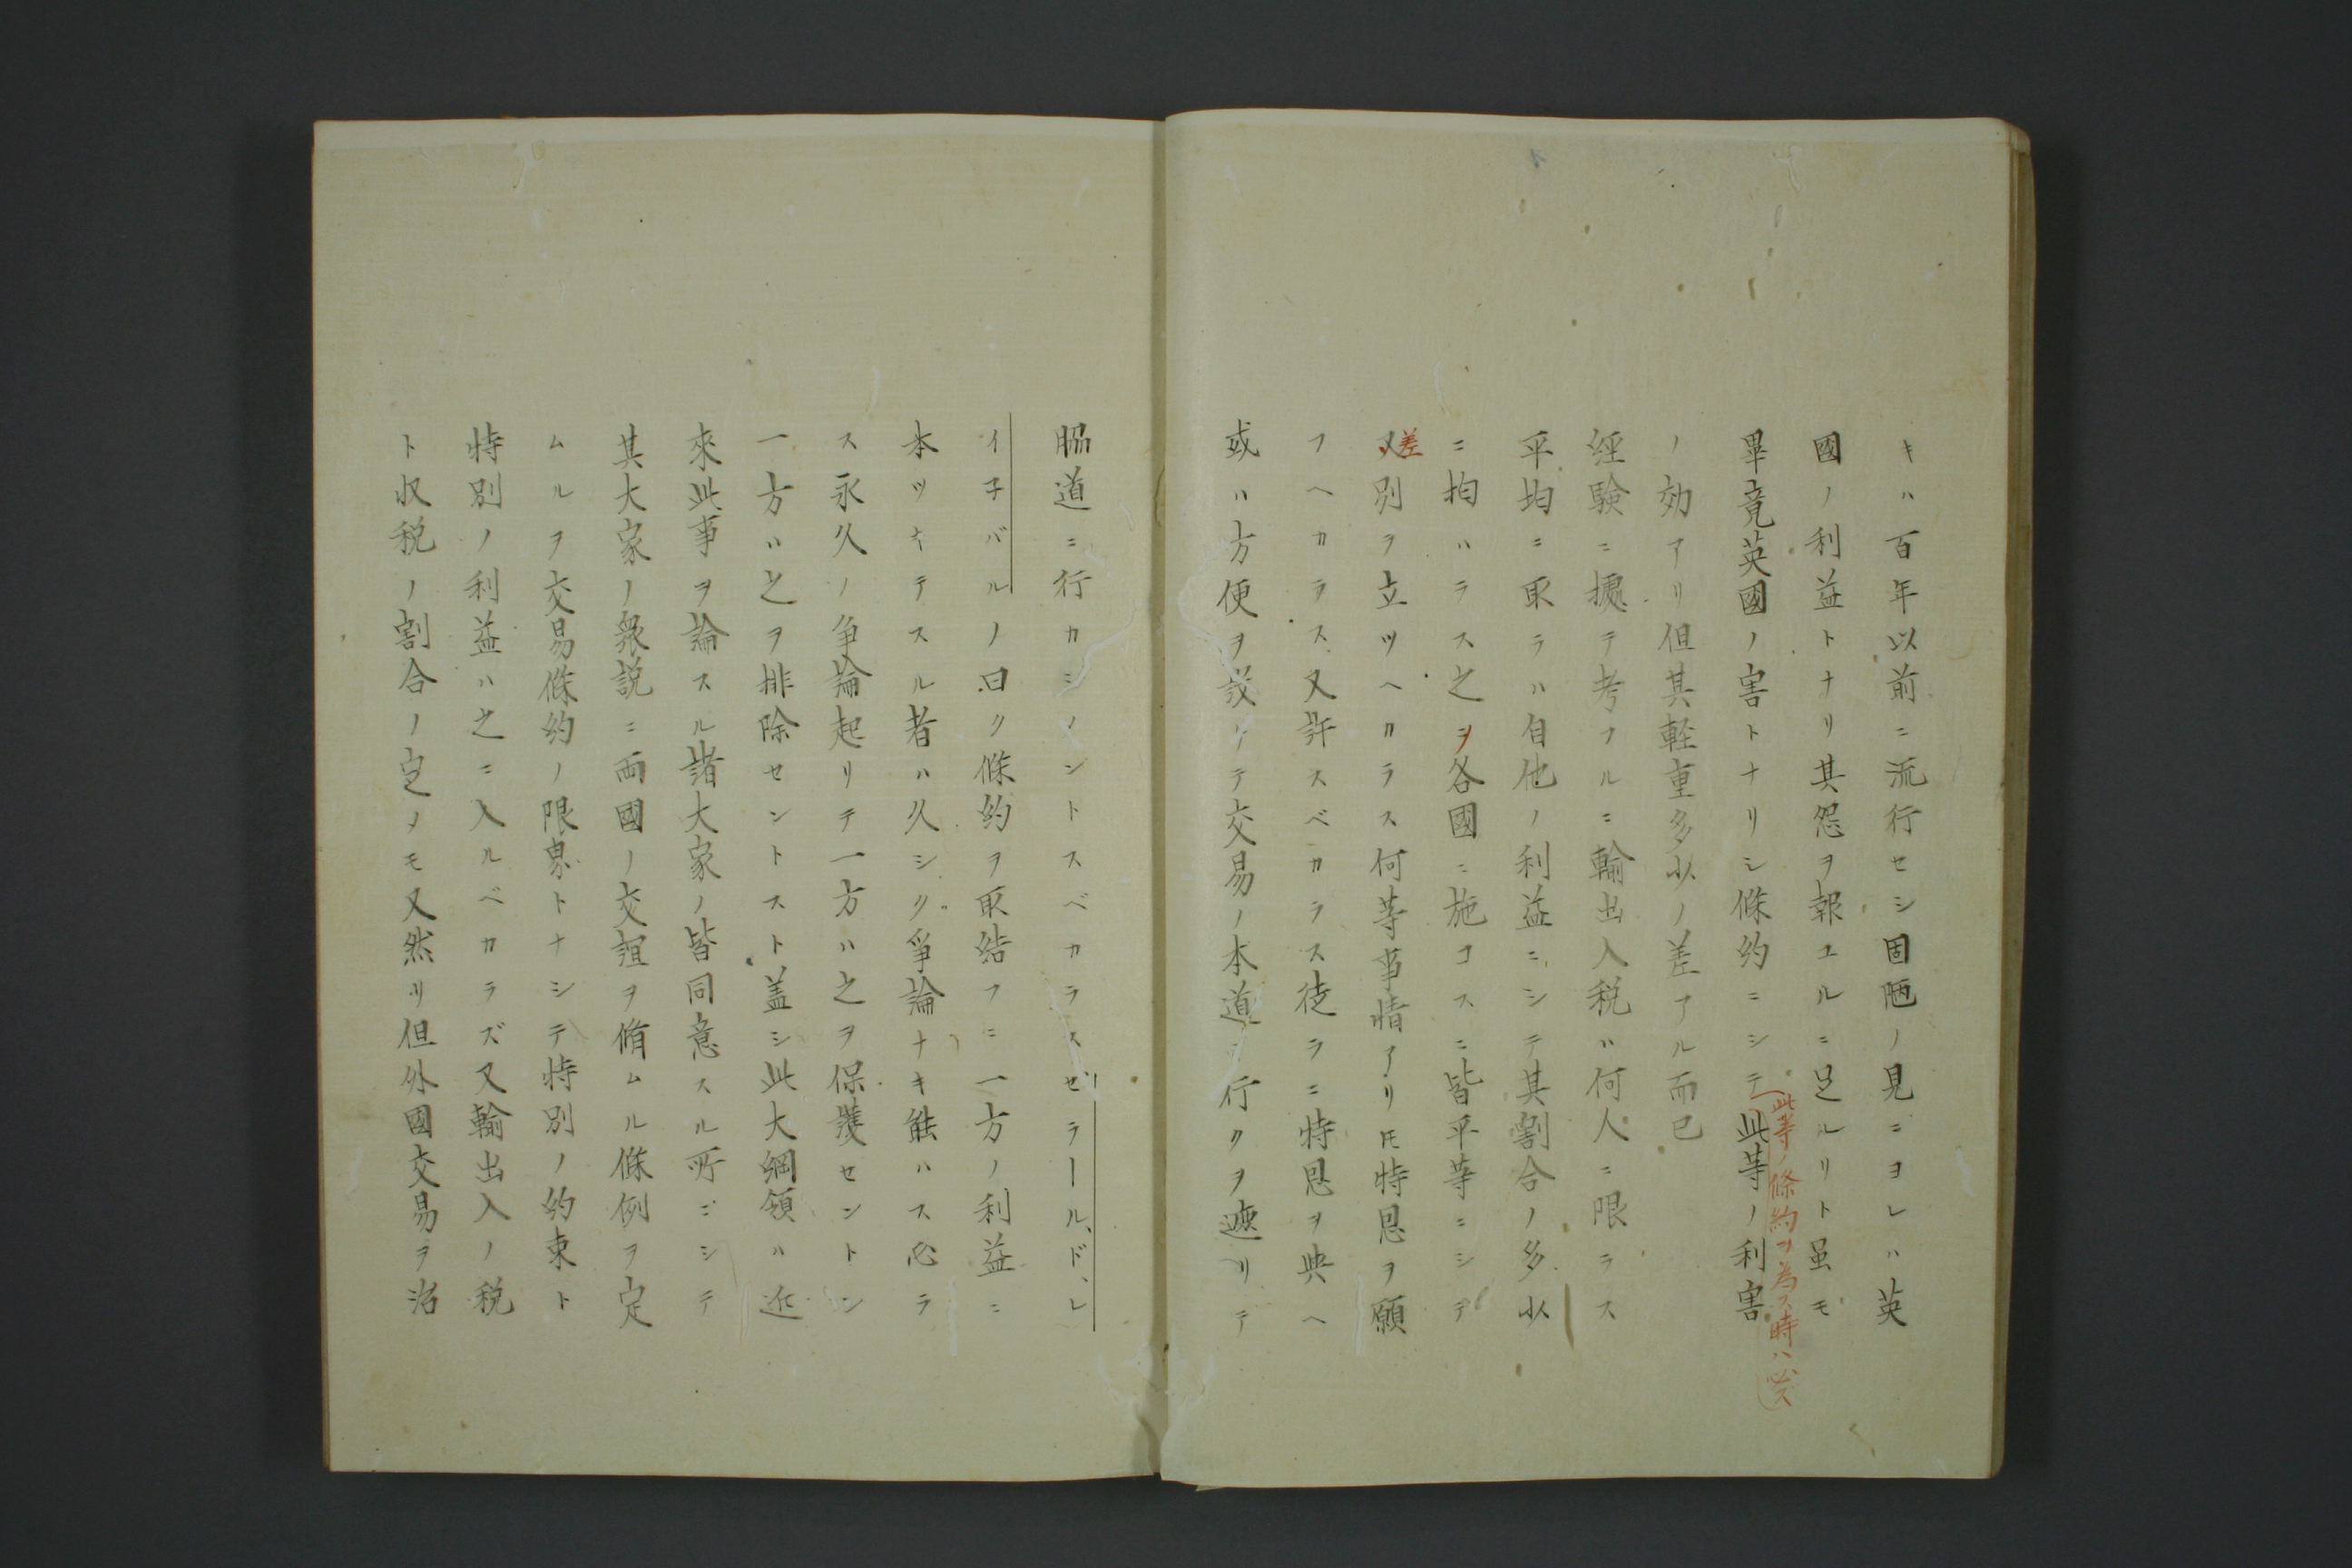 キハ百年以前ニ流行セシ固陋ノ見ニヨレハ英
國ノ利益トナリ其怨ヲ報ユルニ足ルリト虽モ
畢竟英國ノ害トナリシ條約ニシテ此等ノ利害
此等ノ條約ヲ為ス時ハ必ス
ノ効アリ但其軽重多少ノ差アル而已
経験ニ據テ考フルニ輸出入税ハ何人ニ限ラス
平均ニ取ラハ自他ノ利益ニシテ其割合ノ多少
ニ拘ハラス之ヲ各國ニ施コスニ皆平等ニシテ
差
又別ヲ立ツヘカラス何等事情アリ𪜈特恩ヲ願
フヘカラス又許スベカラス徒ラニ特恩ヲ與ヘ
或ハ方便ヲ設ケテ交易ノ本道ニ行クヲ遮リテ
脇道ニ行カシメントスベカラスゼラールド、レ
イ子バルノ曰ク條約ヲ取結フニ一方ノ利益ニ
本ツキテスル者ハ久シク爭論ナキ能ハス必ラ
ス永久ノ争論起リテ一方ハ之ヲ保護セントシ
一方ハ之ヲ排除セントスト蓋シ此大綱領ハ近
來此事ヲ論スル諸大家ノ皆同意スル所ニシテ
其大家ノ衆説ニ両國ノ交誼ヲ脩ムル條例ヲ定
ムルヲ交易條約ノ限界トナシテ特別ノ約束ト
特別ノ利益ハ之ニ入ルベカラズ又輸出入ノ税
ト収税ノ割合ノ定メモ又然リ但外國交易ヲ治